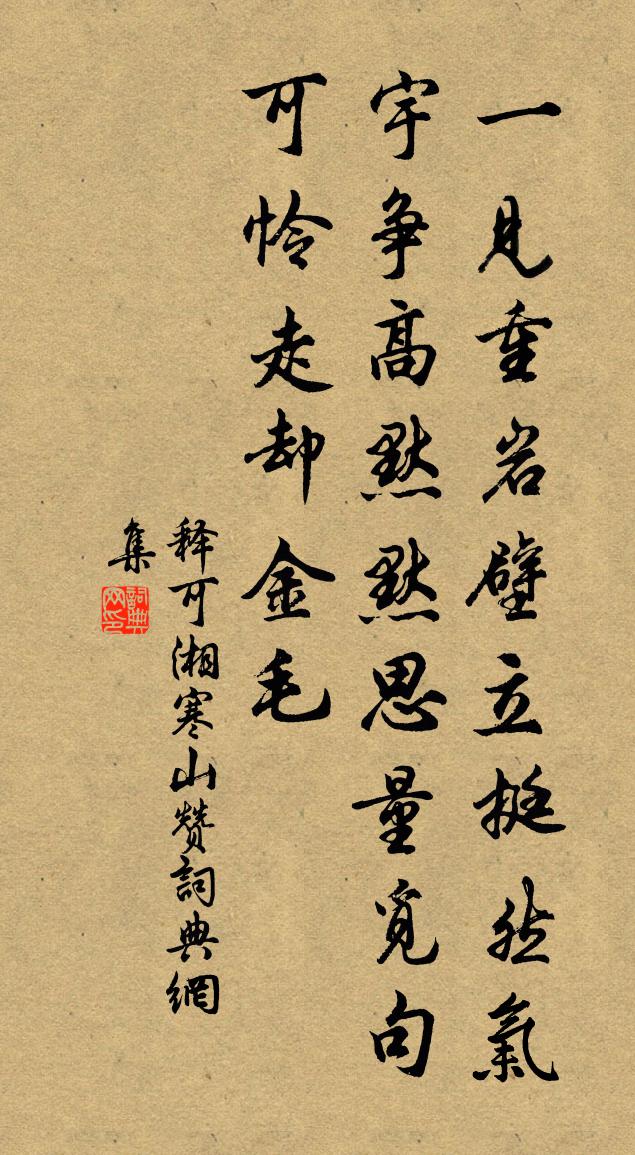 一見重岩壁立挺然氣
宇爭高默默思量覓句
可憐走却金毛
释可湘寒山赞詞典網
集
詞典
网印